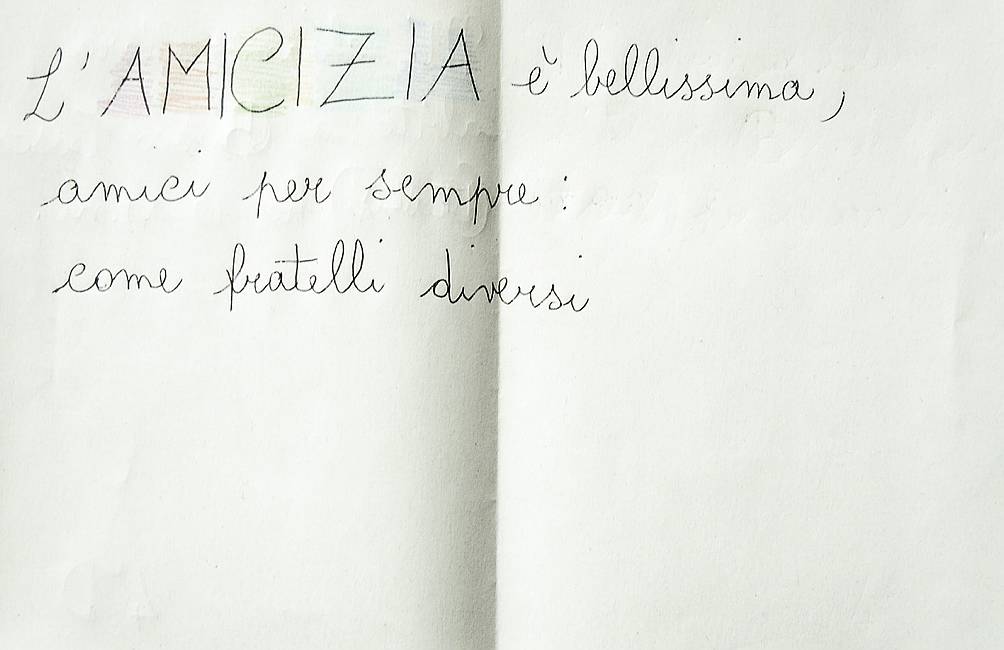 L'AMICIZIA è bellissima,
amici per sempre:
come fratelli diversi